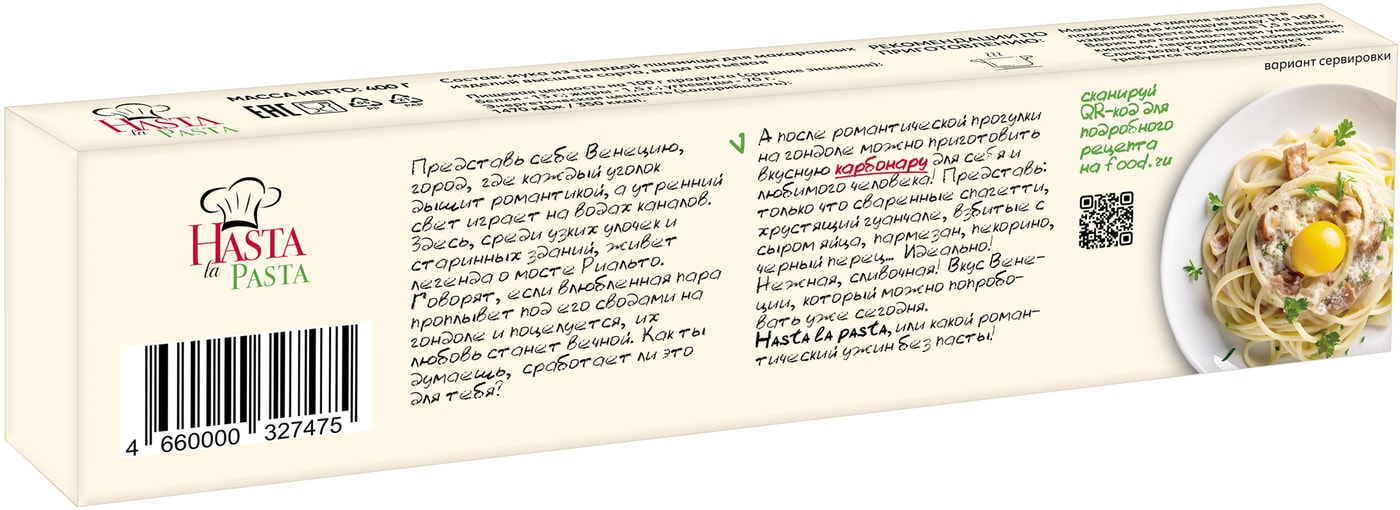 HASTA
la PASTA
МАССА НЕТТО: 400 Г
EAC
Состав: мука из твердой пшеницы для макаронных
изделий высшего сорта, вода питьевая
Пищевая ценность на 100 г продукта (средние значения):
1470 кДж / 350 ккал.
РЕКОМЕНДАЦИИ ПО
ПРИГОТОВЛЕНИЮ:
Макаронные изделия засыпать в
подсоленную кипящую воду. На 100 г
изделий берется не менее 1,5 л воды.
вариант сервировки
HASTA
la PASTA
4 660000 327475
Представь себе Венецию,
город, где каждый уголок
дышит романтикой, а утренний
свет играет на водах каналов.
Здесь, среди узких улочек и
старинных зданий, живет
легенда о мосте Риальто.
Говорят, если влюбленная пара
проплывет под его сводами на
гондоле и поцелуется, их
любовь станет вечной. Как ты
думаешь, сработает ли это
для тебя?
А после романтической прогулки
на гондоле можно приготовить
вкусную карбонару для себя и
любимого человека! Представь:
только что сваренные спагетти,
хрустящий гуанчале, взбитые с
сыром яйца, пармезан, пекорино,
черный перец... Идеально!
Нежная, сливочная! Вкус Вене-
ции, который можно попробо-
вать уже сегодня.
HASTA LA PASTA, или какой роман-
тический ужин без пасты!
сканируй
QR-код для
подробного
рецепта
на food.ru